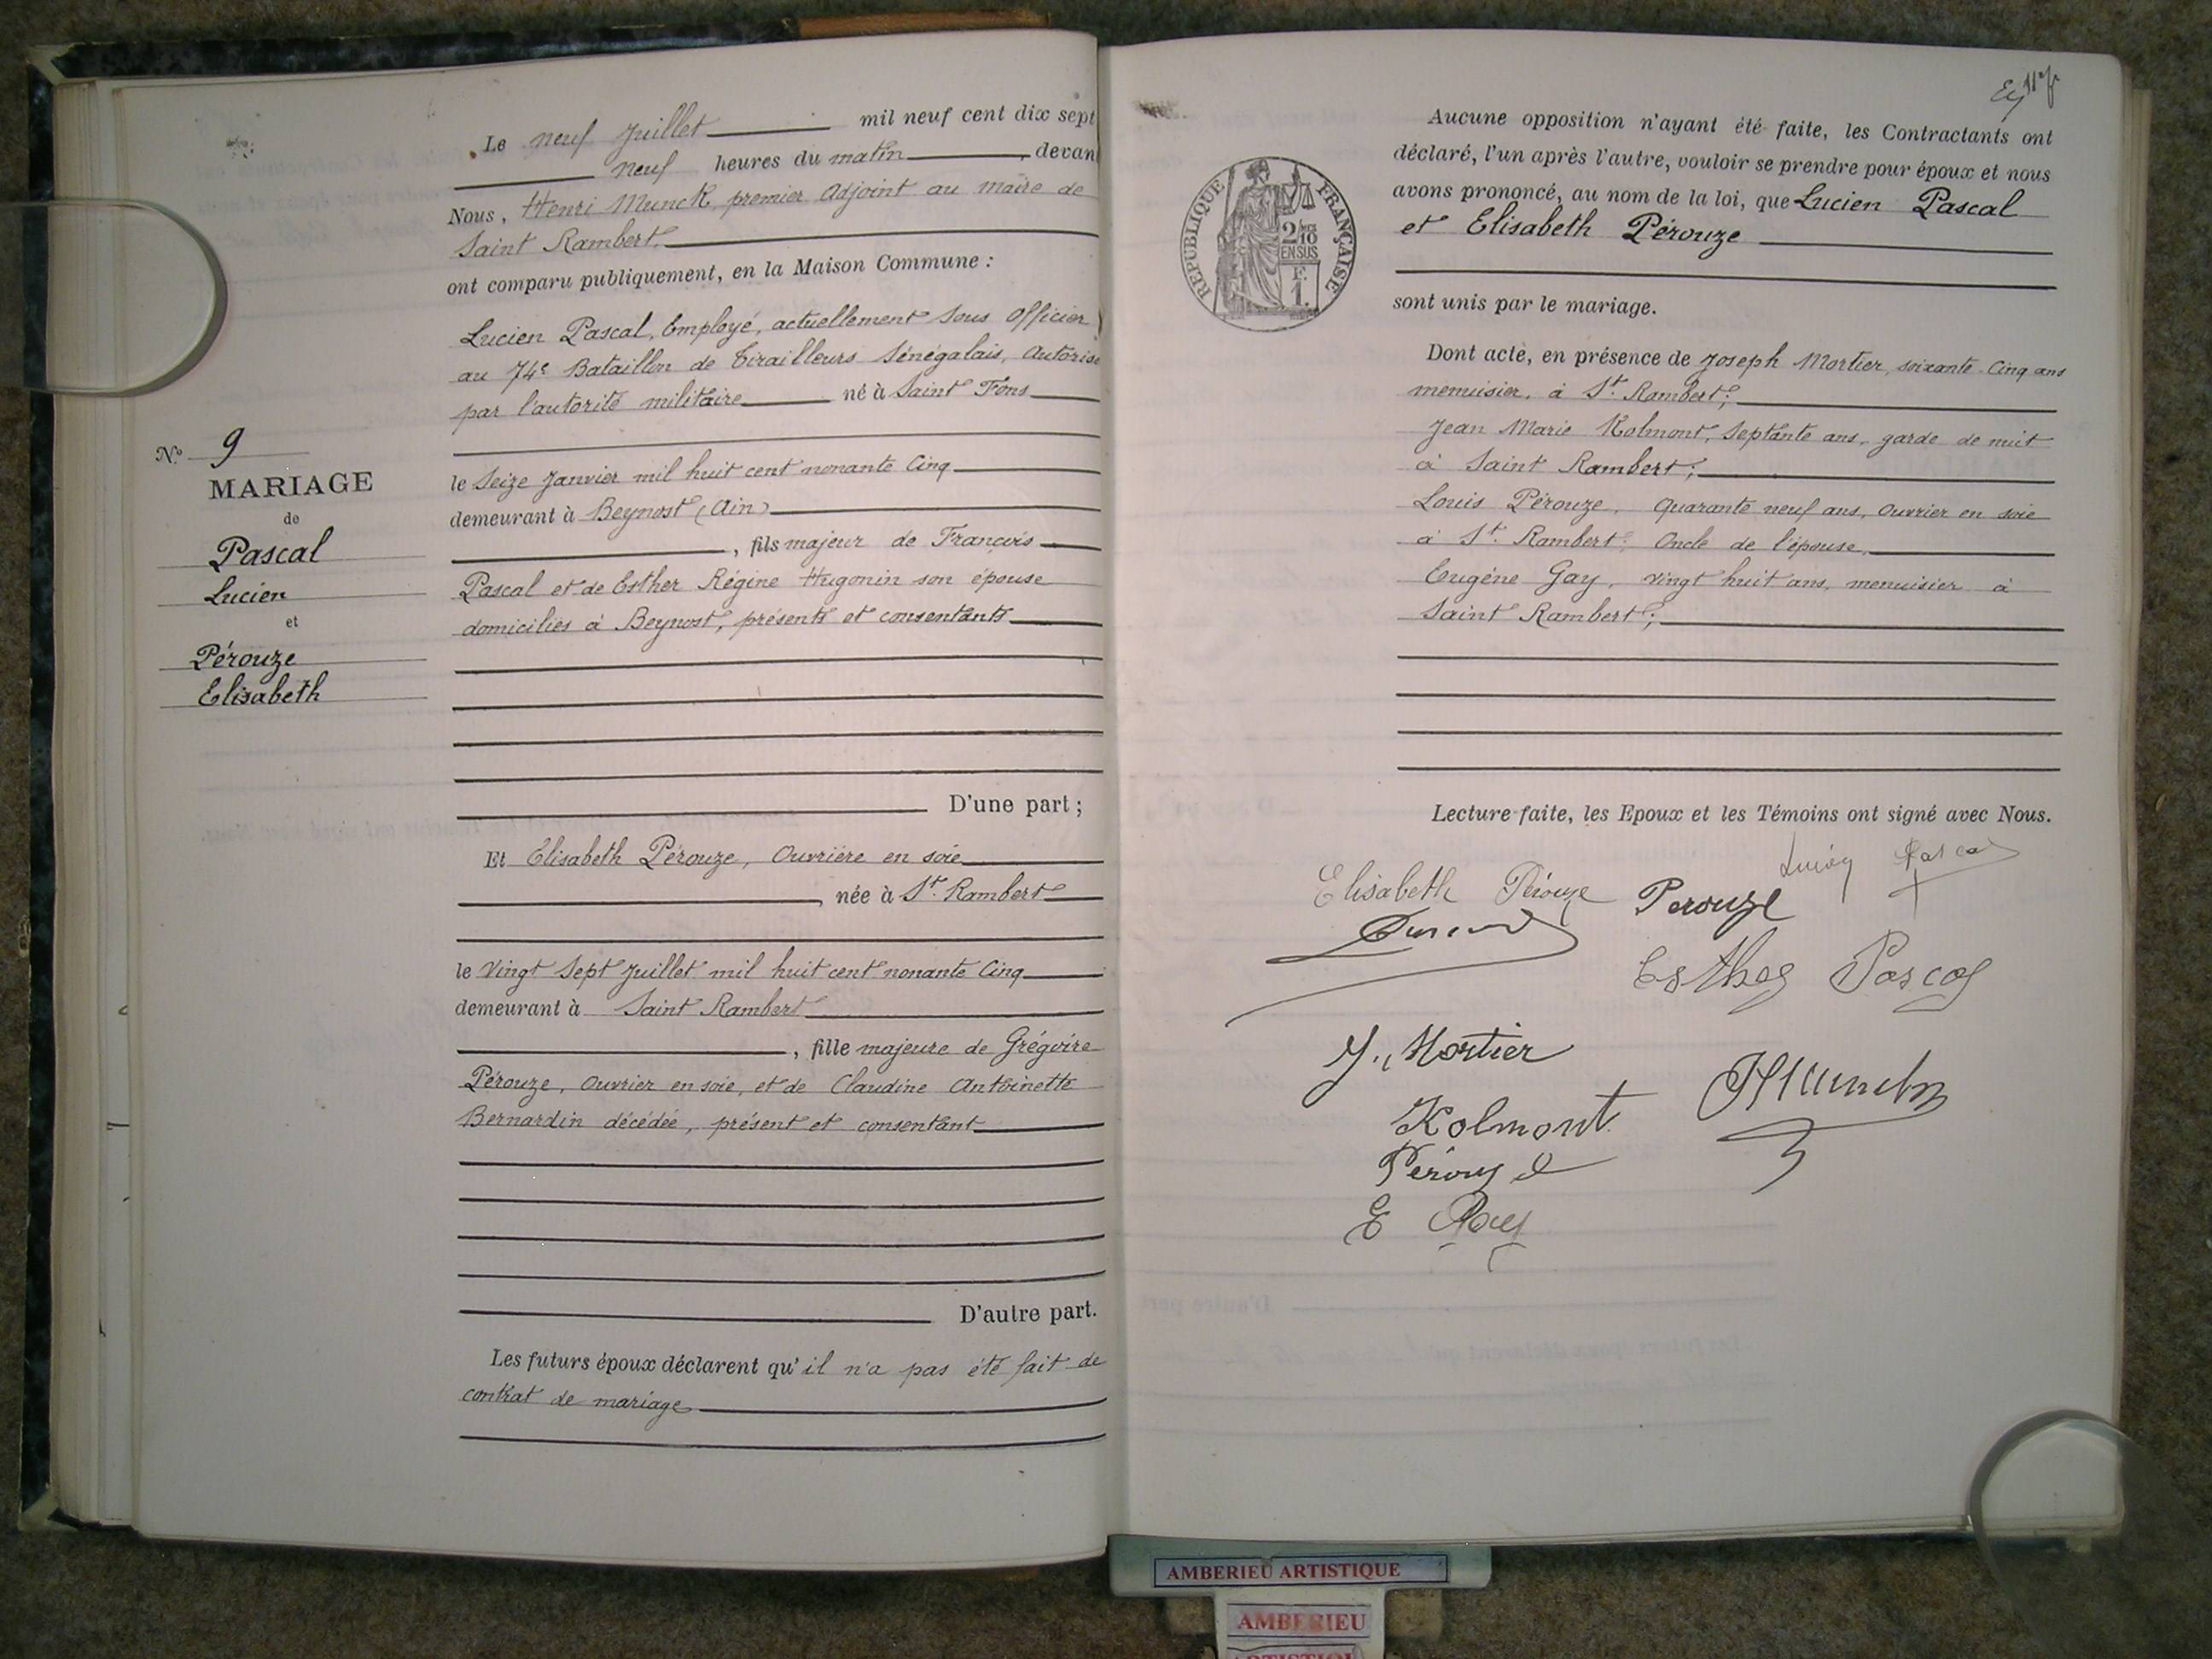 N.º 9
MARIAGE
de
Pascal
Lucien
et
Pérouze
Elisabeth
Le neuf Juillet mil neuf cent dix sept
neuf heures du matin, devan
Nous, Henri Munck, premier Adjoint au maire de
Saint Rambert.
ont comparu publiquement, en la Maison Commune :
Lucien Pascal, Employé, actuellement Sous Officier
au 74e Bataillon de Tirailleurs Sénégalais, Autorisé
par l'autorité militaire né à Saint Fons
le Seize Janvier mil huit cent nonante Cinq
demeurant à Beynost (Ain)
, fils majeur de François
Pascal et de Esther Régine Hugonin son épouse
domiciliés à Beynost, présents et consentants
D'une part ;
Et Elisabeth Pérouze, Ouvrière en soie
, née à St. Rambert
le Vingt Sept Juillet mil huit cent nonante Cinq
demeurant à Saint Rambert
, fille majeure de Grégoire
Pérouze, Ouvrier en soie, et de Claudine Antoinette
Bernardin décédée, présent et consentant
D'autre part.
Les futurs époux déclarent qu'il n'a pas été fait de
contrat de mariage
REPUBLIQUE FRANÇAISE
2/10
EN SUS
F.
1.
Aucune opposition n'ayant été faite, les Contractants ont
déclaré, l'un après l'autre, vouloir se prendre pour époux et nous
avons prononcé, au nom de la loi, que Lucien Pascal
et Elisabeth Pérouze
sont unis par le mariage.
Dont acte, en présence de Joseph Mortier, soixante-Cinq ans
menuisier, à St. Rambert ;
Jean Marie Kolmont, Septante ans, garde de nuit
à Saint Rambert ;
Louis Pérouze, Quarante neuf ans, Ouvrier en soie
à St. Rambert, Oncle de l'épouse,
Eugène Gay, vingt huit ans, menuisier à
Saint Rambert ;
Lecture faite, les Epoux et les Témoins ont signé avec Nous.
Lucien Pascal
Elisabeth Pérouze Perouze
Esther Pascal
J. Mortier
HMunck
Kolmont
Pérouze
E Gay
AMBERIEU ARTISTIQUE
AMBERIEU
ARTISTIQU